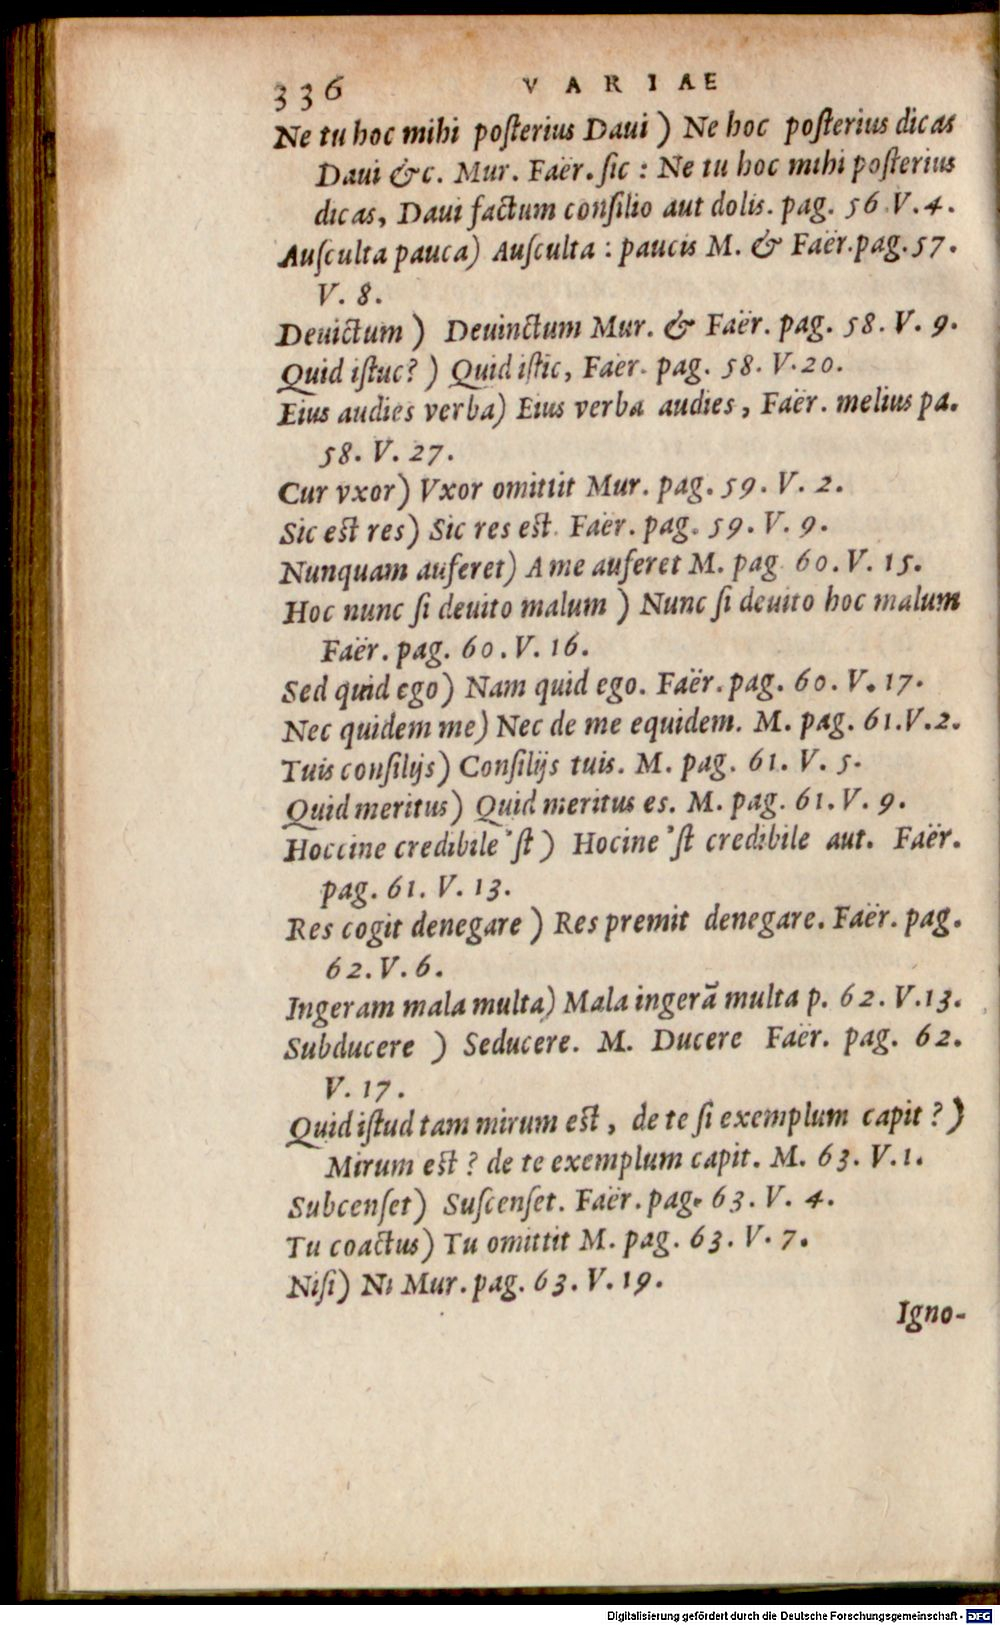 336 VARIAE
Ne tu hoc mihi poſterius Daui ) Ne hoc poſterius dicas
Daui &c. Mur. Faër. ſic : Ne tu hoc mihi poſterius
dicas, Daui factum conſilio aut dolis. pag. 56 V. 4.
Auſculta pauca) Auſculta : paucis M. & Faër. pag. 57.
V. 8.
Deuictum ) Deuinctum Mur. & Faër. pag. 58. V. 9.
Quid iſtuc? ) Quid iſtic, Faer. pag. 58. V. 20.
Eius audies verba) Eius verba audies, Faër. melius pa.
58. V. 27.
Cur vxor) Vxor omittit Mur. pag. 59. V. 2.
Sic est res) Sic res est. Faër. pag. 59. V. 9.
Nunquam auferet) A me auferet M. pag 60. V. 15.
Hoc nunc ſi deuito malum ) Nunc ſi deuito hoc malum
Faër. pag. 60. V. 16.
Sed quid ego) Nam quid ego. Faër. pag. 60. V. 17.
Nec quidem me) Nec de me equidem. M. pag. 61. V. 2.
Tuis conſilijs) Conſilijs tuis. M. pag. 61. V. 5.
Quid meritus) Quid meritus es. M. pag. 61. V. 9.
Hoccine credibile 'ſt ) Hocine 'ſt credibile aut. Faër.
pag. 61. V. 13.
Res cogit denegare ) Res premit denegare. Faër. pag.
62. V. 6.
Ingeram mala multa) Mala ingerā multa p. 62. V. 13.
Subducere ) Seducere. M. Ducere Faër. pag. 62.
V. 17.
Quid iſtud tam mirum est, de te ſi exemplum capit ? )
Mirum est ? de te exemplum capit. M. 63. V. 1.
Subcenſet) Suſcenſet. Faër. pag. 63. V. 4.
Tu coactus) Tu omittit M. pag. 63. V. 7.
Niſi) Ni Mur. pag. 63. V. 19.
Igno-
Digitalisierung gefördert durch die Deutsche Forschungsgemeinschaft - DFG